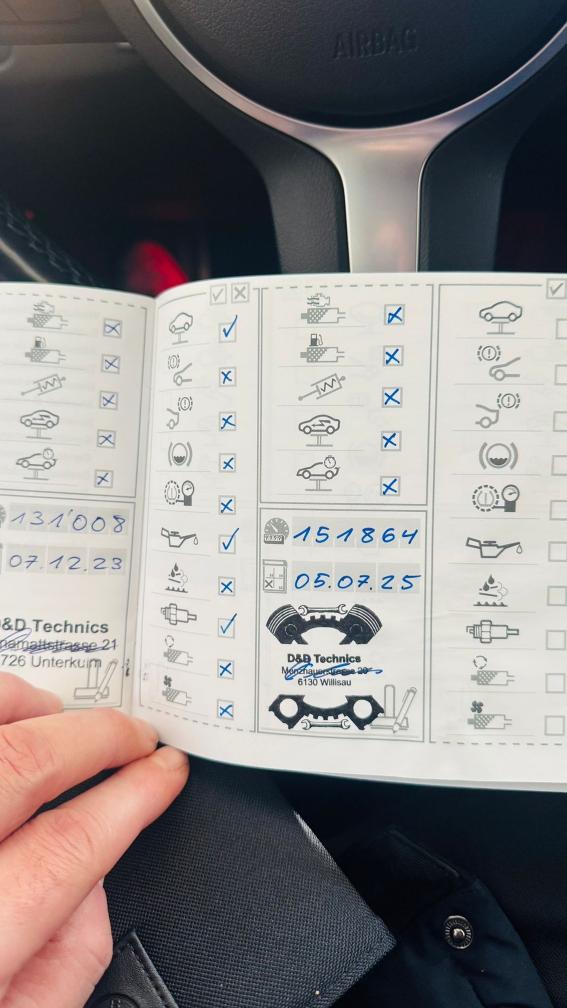 AIRBAG
131'008
07.12.23
D&D Technics
21
Unterkulm
151864
05.07.25
D&D Technics
20
6130 Willisau